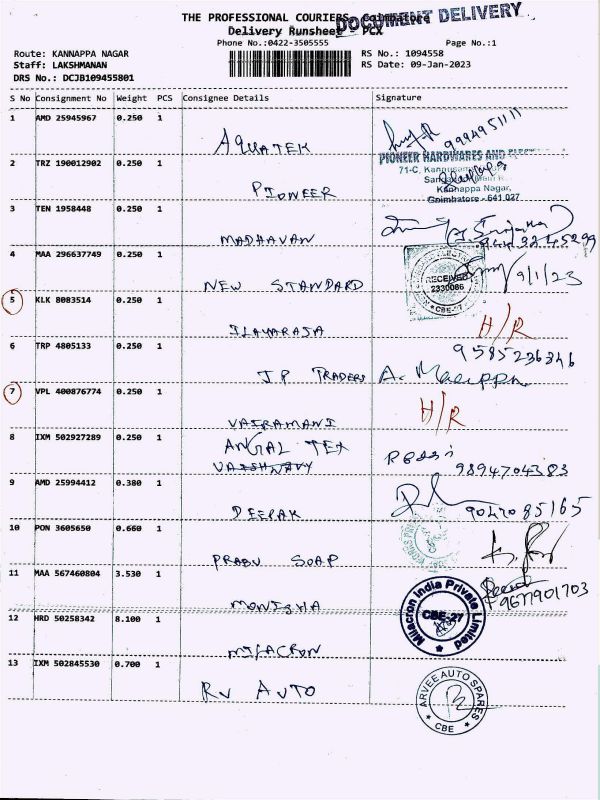 THE PROFESSIONAL COURIERS, Coimbatore
DOCUMENT DELIVERY
Delivery Runsheet PCX
Phone No.:0422-3505555
Page No.:1
Route: KANNAPPA NAGAR
RS No.: 1094558
Staff: LAKSHMANAN
RS Date: 09-Jan-2023
DRS No.: DCJB109455801
S No Consignment No Weight PCS Consignee Details Signature
1 AMD 25945967 0.250 1
AQUATEK
9994951111
2 TRZ 190012902 0.250 1
PIONEER HARDWARES AND
71-C,
Kannappa Nagar,
Coimbatore - 641 027
PIONEER
3 TEN 1958448 0.250 1
MADHAVAN
4 MAA 296637749 0.250 1
NEW STANDARD
RECEIVED
2330086
CBE-27
9/1/23
5 KLK 8083514 0.250 1
ILAYARAJA
H/R
6 TRP 4805133 0.250 1
9585236346
JP TRADERS
7 VPL 400876774 0.250 1
VAIRAMANI
H/R
8 IXM 502927289 0.250 1
ANGAL TEX
9894704383
9 AMD 25994412 0.380 1
DEEPAK
9047085165
10 PON 3605650 0.660 1
PRABU SOAP
11 MAA 567460804 3.530 1
MONISHA
9677901703
12 HRD 50258342 8.100 1
MILACRON
Milacron India Private Limited
CBE-27
13 IXM 502845530 0.700 1
RV AUTO
ARVEE AUTO SPARES
CBE